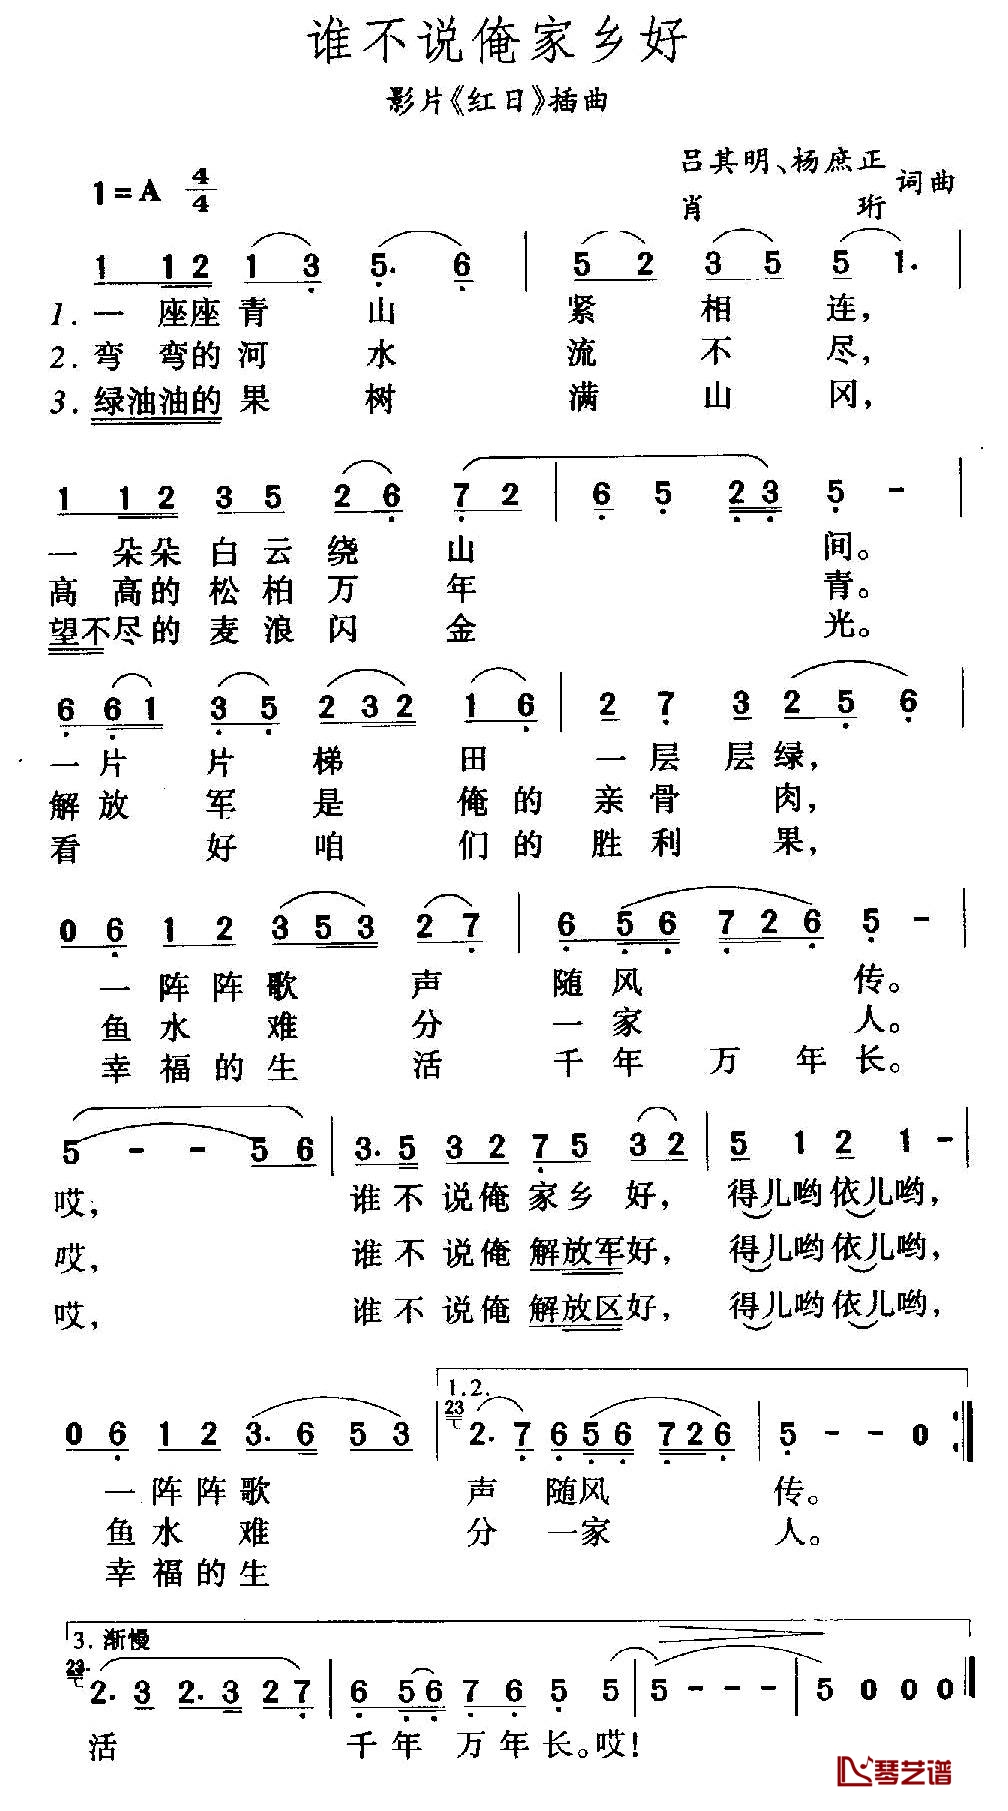 谁不说俺家乡好
影片《红日》插曲
1=A 4/4
吕其明、杨庶正
肖 珩
词曲
1 1 2 1 3 5. 6 | 5 2 3 5 5 1. |
1. 一 座座 青 山 紧 相 连,
2. 弯 弯的 河 水 流 不 尽,
3. 绿油油的 果 树 满 山 冈,
1 1 2 3 5 2 6 7 2 | 6 5 2 3 5 - |
一 朵朵 白 云 绕 山 间。
高 高的 松 柏 万 年 青。
望不尽的 麦 浪 闪 金 光。
6 6 1 3 5 2 3 2 1 6 | 2 7 3 2 5 6 |
一 片 片 梯 田 一 层 层 绿,
解 放 军 是 俺 的 亲 骨 肉,
看 好 咱 们 的 胜 利 果,
0 6 1 2 3 5 3 2 7 | 6 5 6 7 2 6 5 - |
一 阵 阵 歌 声 随 风 传。
鱼 水 难 分 一 家 人。
幸 福 的 生 活 千 年 万 年 长。
5 - - 5 6 | 3. 5 3 2 7 5 3 2 | 5 1 2 1 - |
哎, 谁 不 说 俺 家 乡 好, 得儿哟 依儿哟,
哎, 谁 不 说 俺 解放军 好, 得儿哟 依儿哟,
哎, 谁 不 说 俺 解放区 好, 得儿哟 依儿哟,
1.2.
0 6 1 2 3. 6 5 3 | 23 2. 7 6 5 6 7 2 6 | 5 - - 0 :|
一 阵 阵 歌 声 随风 传。
鱼 水 难 分 一家 人。
幸 福 的 生
3. 渐慢
23 2. 3 2. 3 2 7 | 6 5 6 7 6 5 5 | 5 - - - | 5 0 0 0 |
活 千 年 万 年 长。哎!
琴艺谱